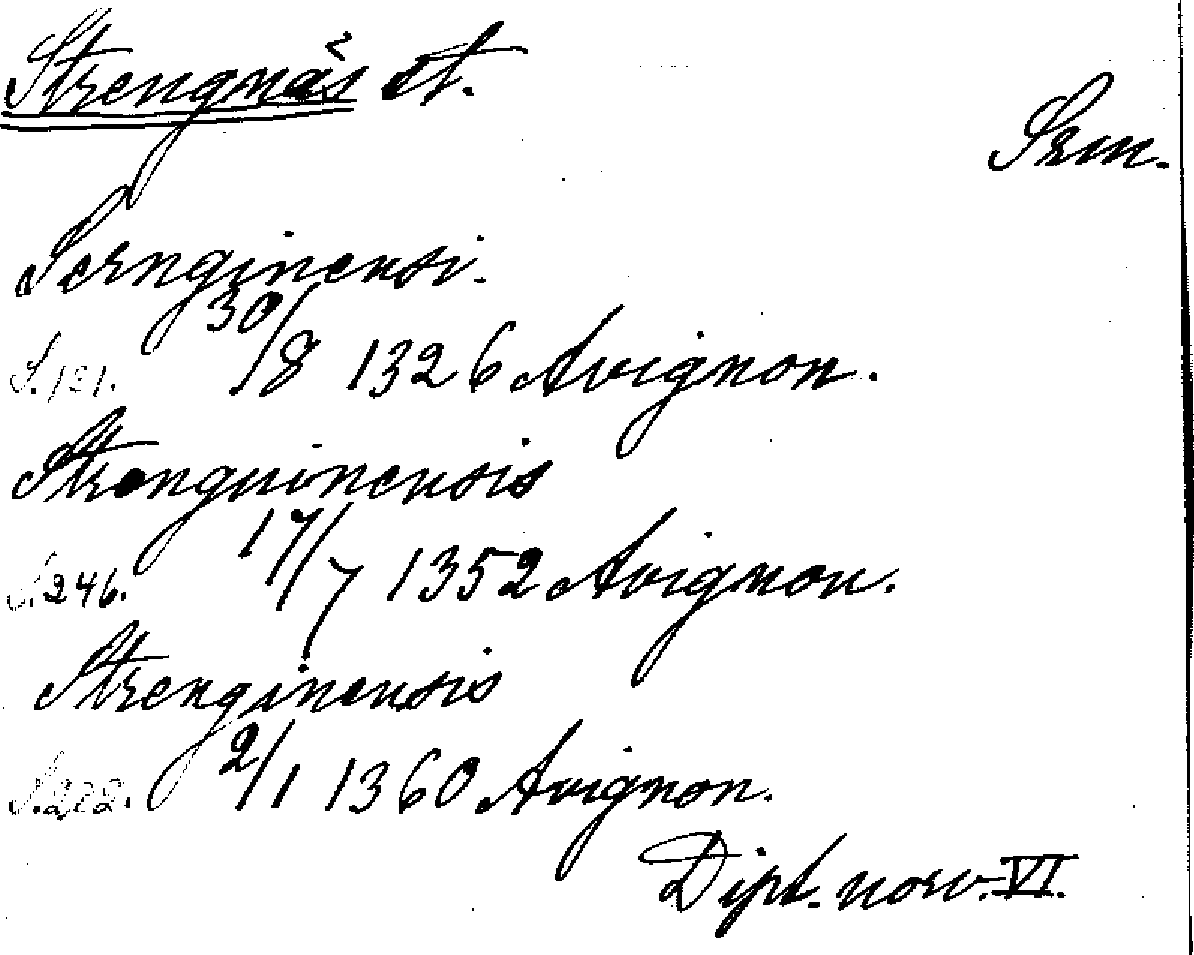 Strengnäs st.
Srm.
Scrnginensi.
S. 121. 30/8 1326 Avignon.
Strenguinensis
S. 246. 17/7 1352 Avignon.
Strenginensis
2/1 1360 Avignon.
Dipl. norv. VI.